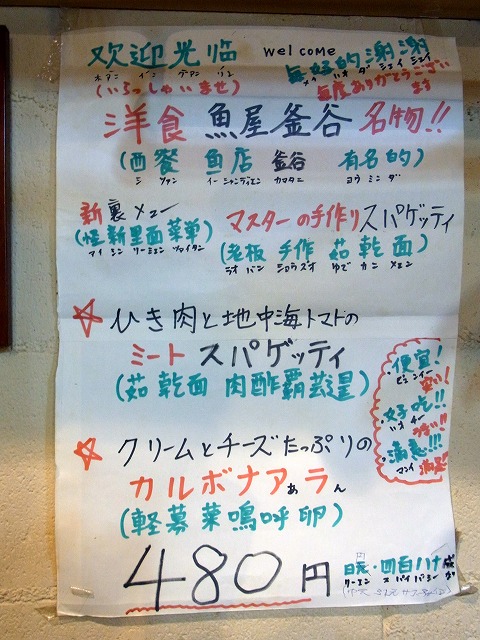 欢迎光临 welcome 每好的謝謝
ホアン イン グアン リン メイ ハオ ダ シェイ シェイ
(いらっしゃいませ) 毎度ありがとうござい
ます
洋食 魚屋釜谷 名物!!
(西餐 魚店 釜谷 有名的)
シ ツァン イー シャンディエン カマタニ ヨウ ミン ダ
新裏メニュー マスターの手作りスパゲッティ
(怪新里面菜単) (老板 手作 茹乾面)
ラオ バン シロウズオ ゆで カン メェン
☆ ひき肉と地中海トマトの
ミート スパゲッティ
(茹乾面 肉酢覇蕓達)
・便宜!
ピェンイー 安い!
・好吃!!
ハオ チー うまい!!
・満意!!!
マンイ 満足!!!
☆ クリームとチーズたっぷりの
カルボナァぁラん
(軽募菜鳴呼卵)
480円 日元・四百八十
リーエン スバイバシー